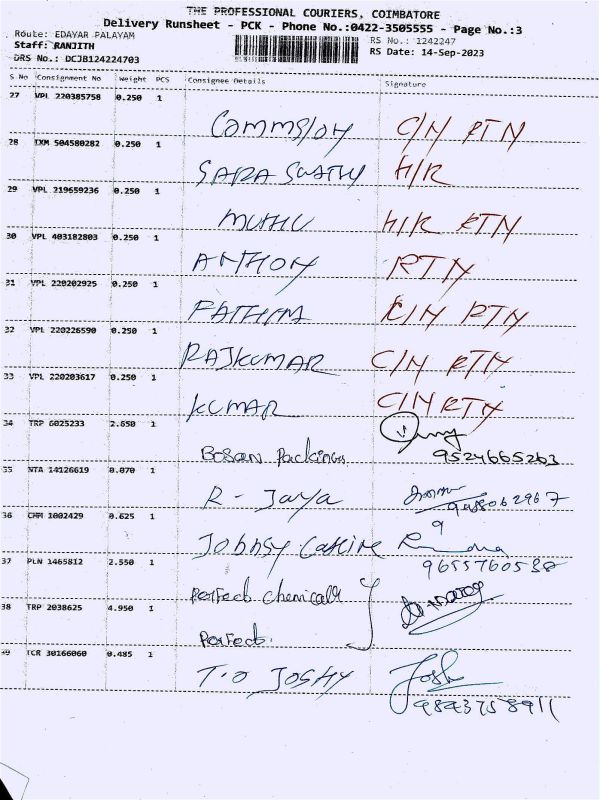 THE PROFESSIONAL COURIERS, COIMBATORE
Delivery Runsheet - PCK - Phone No.:0422-3505555 - Page No.:3
Route: EDAYAR PALAYAM RS No.: 1242247
Staff: RANJITH RS Date: 14-Sep-2023
DRS No.: DCJB124224703
S No Consignment No Weight PCS Consignee Details Signature
27 VPL 220385758 0.250 1
C/N RTN
28 IXM 504580282 0.250 1
SARA SWATHY H/R
29 VPL 219659236 0.250 1
MUTHU H/R RTN
30 VPL 403182803 0.250 1
ANTHONY RTN
31 VPL 220202925 0.250 1
FATHIMA C/N RTN
32 VPL 220226590 0.250 1
RAJKUMAR C/N RTN
33 VPL 220203617 0.250 1
KUMAR C/N RTN
34 TRP 6025233 2.650 1
Packings 9524665263
35 NTA 14126619 0.070 1
R - Jaya
36 CHM 1002429 0.625 1
Johnsy
37 PLN 1465812 2.550 1 9655760538
Perfect chemicals
38 TRP 2038625 4.950 1
Perfect.
39 TCR 30166060 0.485 1
T.O JOSHY Josh
9843758911